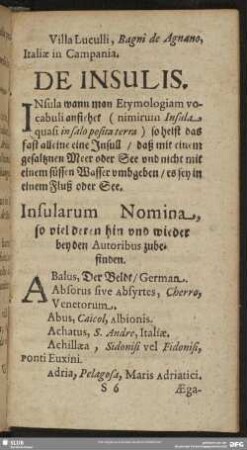 Villa Luculli, Bagni de Agnano,
Italiæ in Campania.
DE INSULIS.
INsula wann man Etymologiam vo-
cabuli ansihet (nimirum Insula
quasi in salo posita terra) so heist das
fast alleine eine Insull / daß mit einem
gesaltznen Meer oder See vnd nicht mit
einem süssen Wasser vmbgeben / es sey in
einem Fluß oder See.
Insularum Nomina,
so viel deren hin vnd wieder
bey den Autoribus zube-
finden.
ABalus, Der Beldt / German.
Absorus sive Absyrtes, Cherro,
Venetorum.
Abus, Caicol, Albionis.
Achatus, S. Andre, Italiæ.
Achillæa, Sidonisi vel Fidonisi,
Ponti Euxini.
Adria, Pelagosa, Maris Adriatici.
S 6 Æga-
SLUB